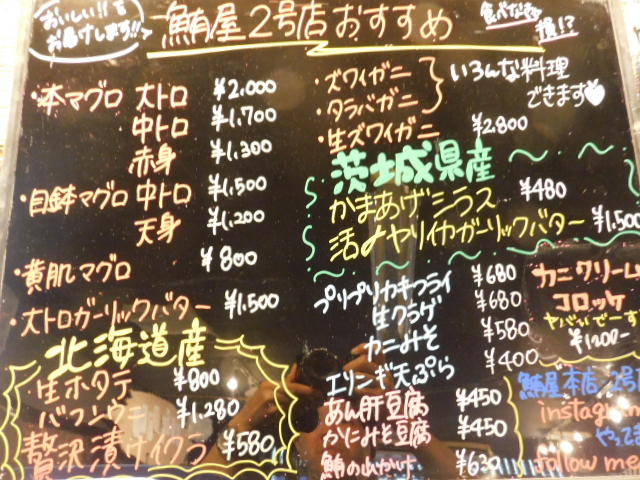 おいしい!!を
お届けします!!
鮪屋2号店おすすめ
食べなきゃ
損!?
・本マグロ 大トロ ¥2.000
中トロ ¥1.700
赤身 ¥1.300
・目鉢マグロ 中トロ ¥1,500
天身 ¥1,200
・黄肌マグロ ¥800
・大トロガーリックバター ¥1.500
北海道産
・生ホタテ ¥800
バフンウニ ¥1,280
贅沢漬けイクラ ¥580
・ズワイガニ
・タラバガニ
いろんな料理
できます♥
・生ズワイガニ ¥2.800
茨城県産
かまあげシラス ¥480
活〆ヤリイカガーリックバター ¥1,500
プリプリカキフライ ¥680
生クラゲ ¥680
カニみそ ¥580
エリンギ天ぷら ¥400
あん肝豆腐 ¥450
かにみそ豆腐 ¥450
鮪の山かけ ¥630
カニクリーム
コロッケ
ヤバいでーす
¥1200-
鮪屋本店 2号
instag
やって
follow me